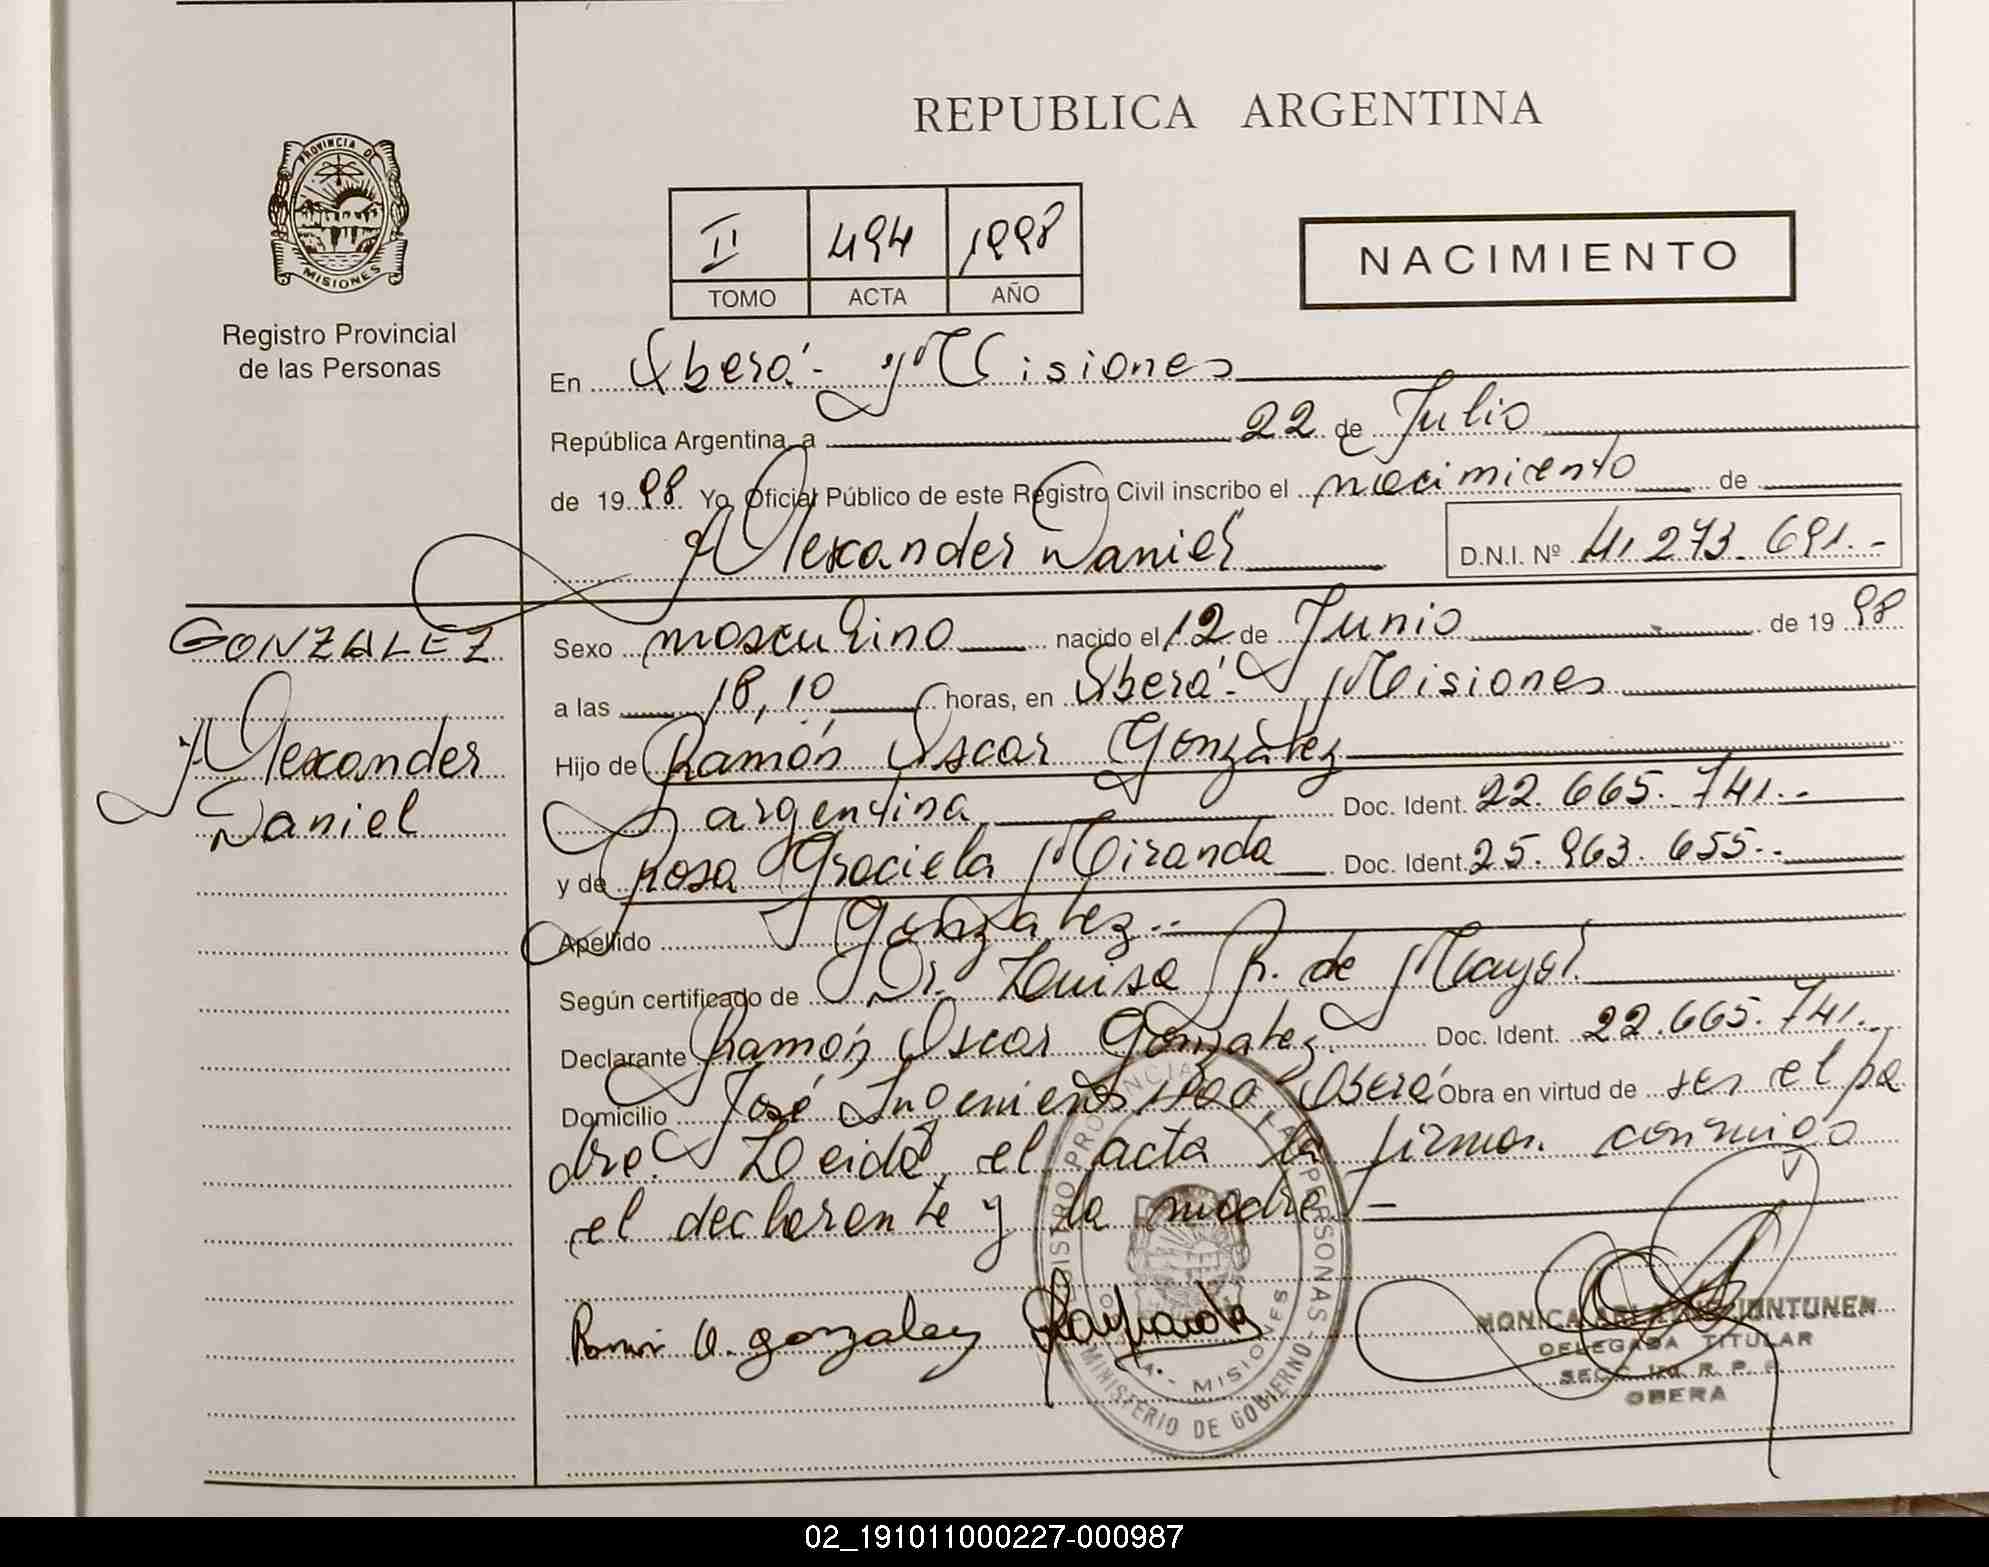 REPUBLICA ARGENTINA
PROVINCIA DE
MISIONES
Registro Provincial
de las Personas
II 494 1998
TOMO ACTA AÑO
NACIMIENTO
En Oberá - Misiones
República Argentina, a 22 de Julio
de 1998 Yo, Oficial Público de este Registro Civil inscribo el nacimiento de
Alexander Daniel D.N.I. Nº 41.273.691.-
GONZALEZ
Alexander
Daniel
Sexo masculino nacido el 12 de Junio de 1998
a las 18,10 horas, en Oberá - Misiones
Hijo de Ramón Oscar González
argentina Doc. Ident. 22.665.741.-
y de Rosa Graciela Miranda Doc. Ident. 25.963.655.-
Apellido González.-
Según certificado de Dr. Luisa R. de Mayol.
Declarante Ramón Oscar González. Doc. Ident. 22.665.741.-
Domicilio José Ingenieros Oberá Obra en virtud de ser el pa
dre. Leida el acta la firman conmigo
el declarante y la madre. -
Ramon O. gonzalez
REGISTRO PROVINCIAL PERSONAS
MISIONES
MINISTERIO DE GOBIERNO
MONICA
DELEGADA TITULAR
SECC. 1ra. R. P. P.
OBERA
02_191011000227-000987